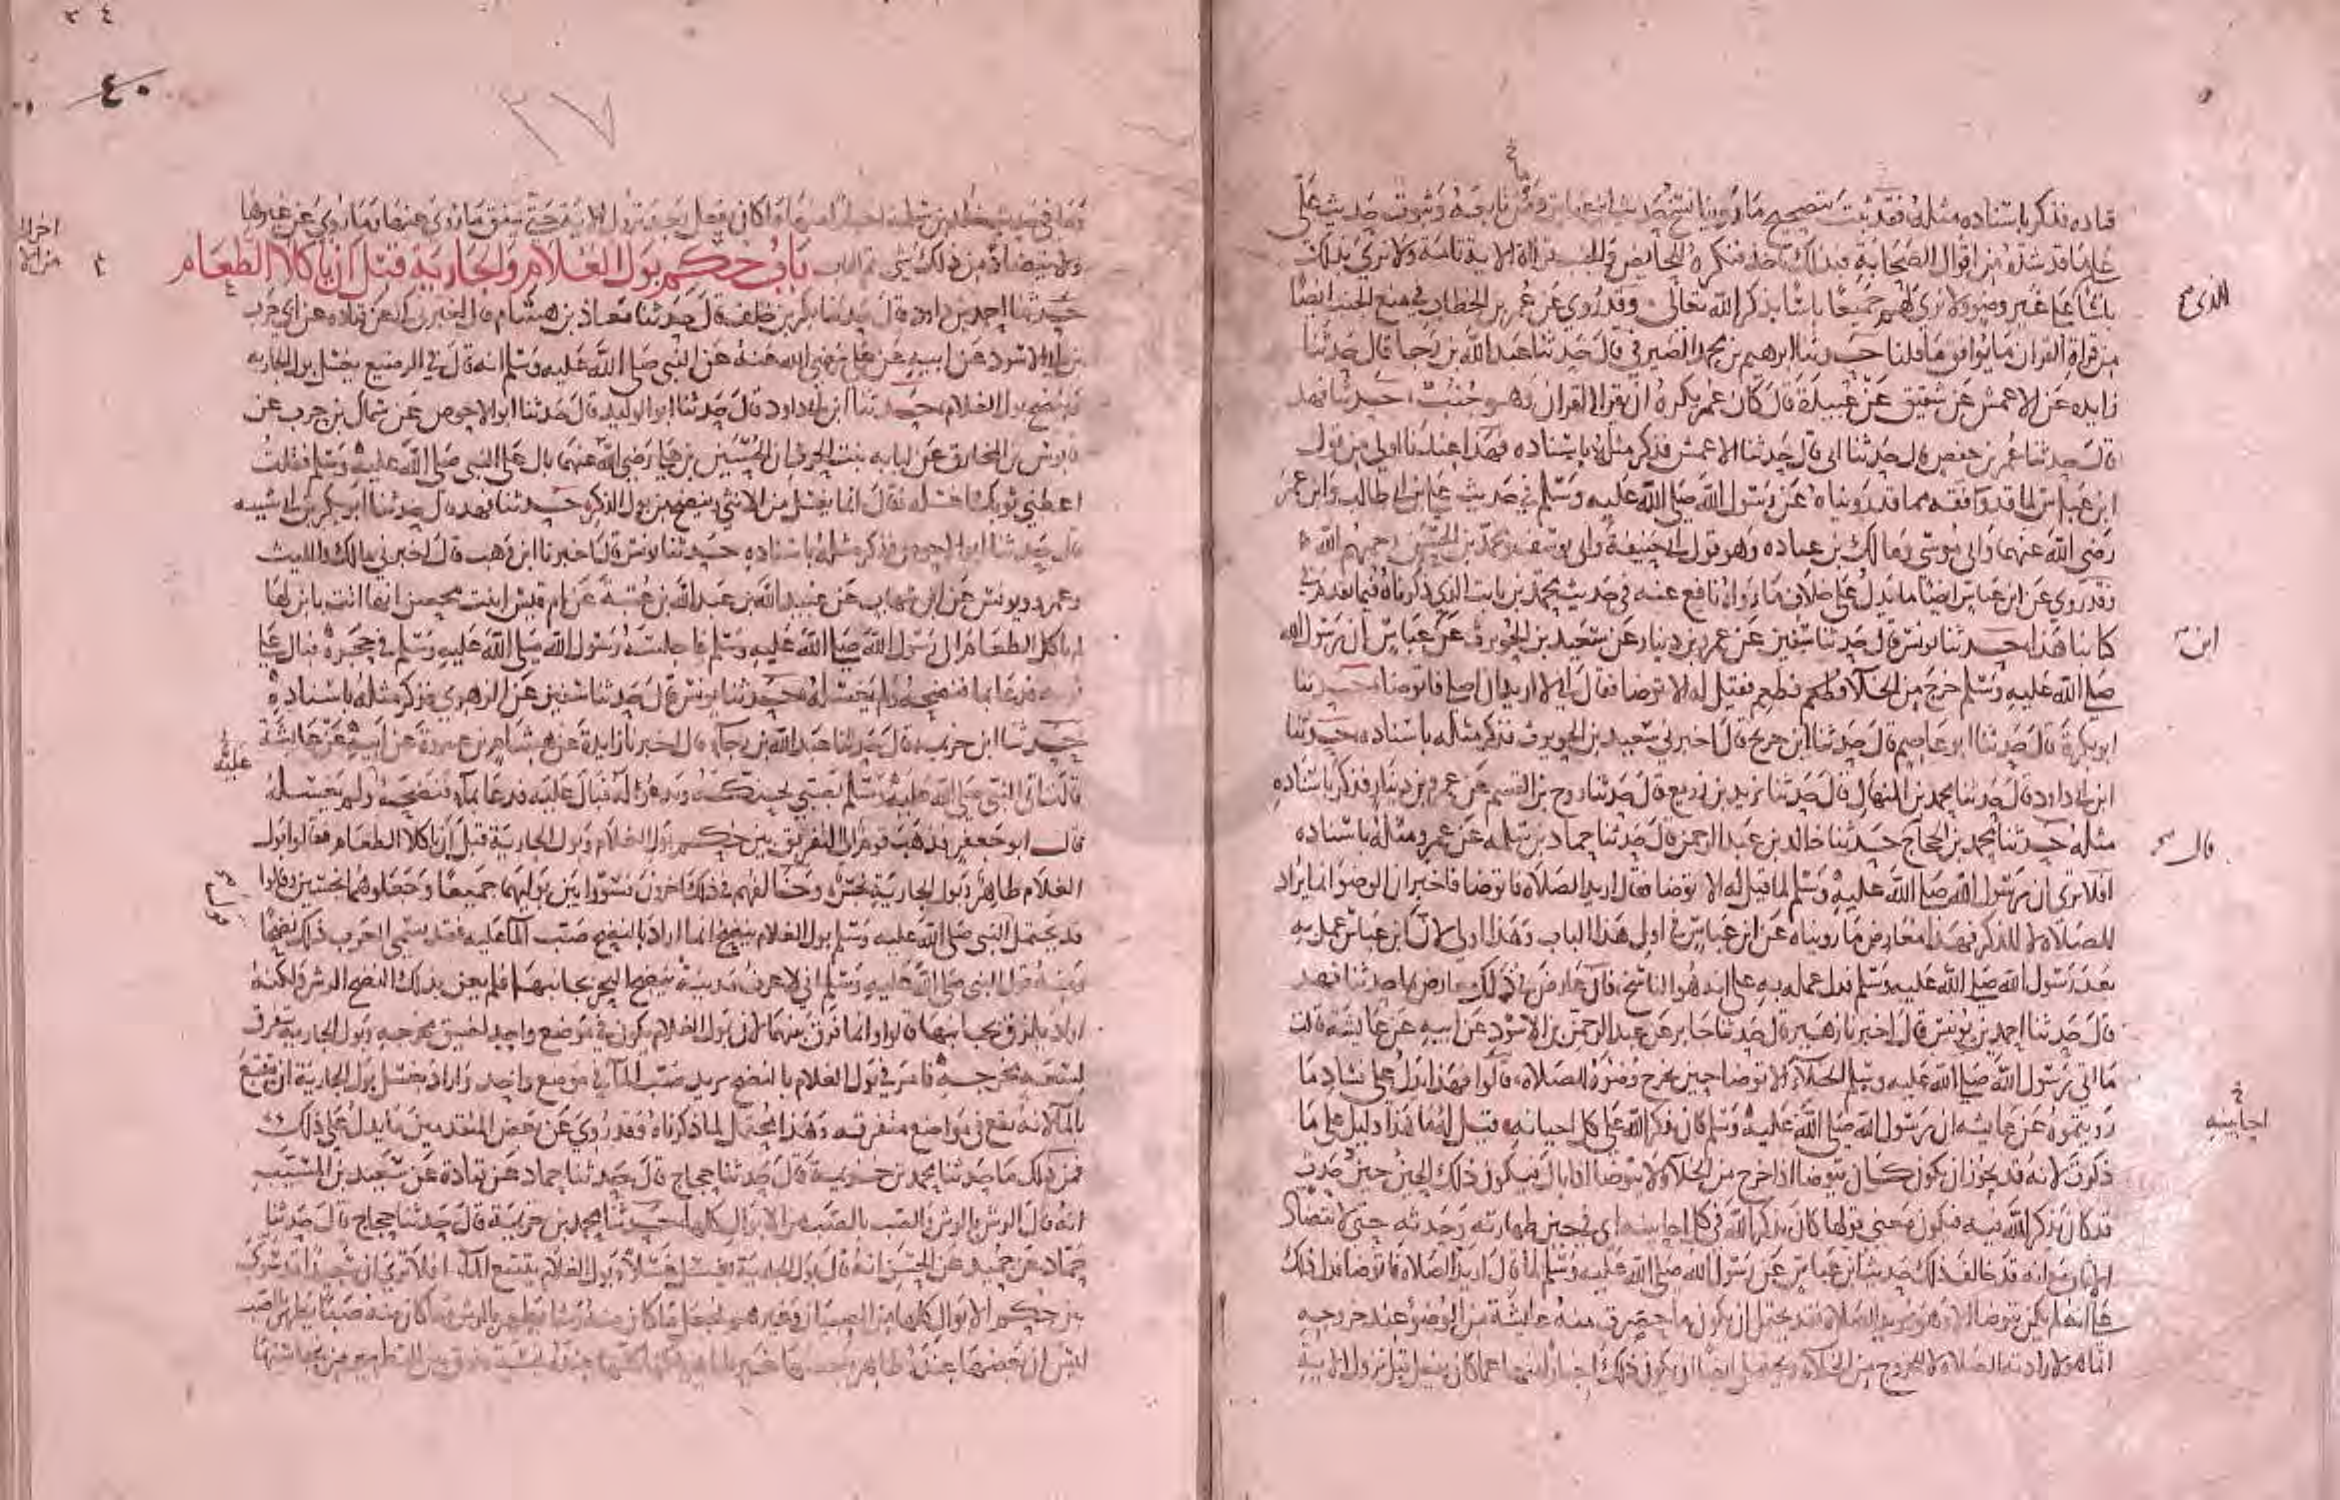 قتاده فذكر باسناده مثله فقد ثبت بتصحيح ما روينا نسخ حديث ابن عباس ومن تابعه وثبوت حديث علي
علي ما قد شده من اقوال الصحابة فبذلك ناخذ فنكره للحائض وللجنب قراة الاية تامة ولا نري بذلك
باسا علي غير وضو ولا نري لهم جميعا باسا بذكر الله تعالى وقد روي عن عمر بن الخطاب في منع الجنب ايضا
من قراة القران ما يوافق ما قلنا حدثنا ابرهيم بن محمد الصيرفي قال حدثنا عبد الله بن رجا قال حدثنا
زايده عن الاعمش عن شقيق عن عبيدة قال كان عمر يكره ان يقرا القران وهو جنب حدثنا فهد
قال حدثنا عمر بن حفص قال حدثنا ابي قال حدثنا الاعمش فذكر مثله باسناده فهذا عندنا اولي من قول
ابن عباس لما قد وافقه مما قد رويناه عن رسول الله صلى الله عليه وسلم في حديث علي بن ابي طالب وابن عمر
رضي الله عنهما وابي موسى ومالك بن عباده وهو قول ابي حنيفة وابي يوسف ومحمد بن الحسن رحمهم الله
وقد روي عن ابن عباس ايضا ما يدل على خلاف ما رواه نافع عنه في حديث محمد بن ثابت الذي ذكرناه فيما تقدم في
كتابنا هذا حدثنا يونس قال حدثنا سفين عن عمرو بن دينار عن سعيد بن الحويرث عن عباس ان رسول الله
صلى الله عليه وسلم خرج من الخلا فطعم فقيل له الا توضا فقال اني لا اريد ان اصلي فاتوضا حدثنا
ابو بكرة قال حدثنا ابو عاصم قال حدثنا ابن جريج قال اخبرني سعيد بن الحويرث فذكر مثله باسناده حدثنا
ابن ابي داود قال حدثنا محمد بن المنهال قال حدثنا يزيد بن زريع قال حدثنا روح بن القسم عن عمرو بن دينار فذكر باسناده
مثله حدثنا محمد بن الحجاج حدثنا خالد بن عبد الرحمن قال حدثنا حماد بن سلمه عن عمرو مثله باسناده
افلا تري ان رسول الله صلى الله عليه وسلم لما قيل له الا توضا فقال اريد الصلاة فاتوضا فاخبر ان الوضو انما يراد
للصلاة لا للذكر فهذا معارض ما رويناه عن ابن عباس في اول هذا الباب وهذا اولي لان ابن عباس عمل به
بعد رسول الله صلى الله عليه وسلم فدل عمله به علي انه هو الناسخ فان عارض في ذلك معارض بما حدثنا فهد
قال حدثنا احمد بن يونس قال اخبرنا زهير قال حدثنا جابر عن عبد الرحمن بن الاسود عن ابيه عن عائشة قالت
ما اتى رسول الله صلى الله عليه وسلم الخلا الا توضا حين يخرج وضوه للصلاة قالوا فهذا يدل علي فساد ما
رويتموه عن عائشه ان رسول الله صلى الله عليه وسلم كان يذكر الله علي كل احيانه قيل لهما هذا دليل علي ما
ذكرت لانه قد يجوز ان يكون كان يتوضا اذا خرج من الخلا ولا يتوضا اذا بال فيكون ذلك الحين حين حدث
قد كان يذكر الله فيه فيكون معني قولها كان يذكر الله في كل احيانه اي في حين طهارته وحدثه حتي لا يتضاد
مع انه قد خالف ذلك حديث ابن عباس عن رسول الله صلى الله عليه وسلم لما قال اريد الصلاة فاتوضا فدل ذلك
علي انه لم يكن يتوضا الا وهو يريد الصلاة فقد يحتمل ان يكون ما حضرت منه عايشة من الوضوء عند خروجه
انما هو لارادته الصلاة لا للخروج من الخلا ويحتمل ايضا ان يكون ذلك اخبارا منها عما كان يفعل قبل نزول الاية
الذي
ابن
قال
احايينه
٤٠
٢٧
وما في حديث خالد بن سلمة اخبارا منها لما كان يفعل بعد نزول الاية حتى يتفق ما روي عنها وما روي عن غيرها
ولا يتضاد من ذلك شي باب حكم بول الغلام والجارية قبل ان ياكلا الطعام
حدثنا احمد بن داود قال حدثنا بكر بن خلف قال حدثنا معاذ بن هشام قال اخبرني ابي عن قتاده عن ابي حرب
بن ابي الاسود عن ابيه عن علي رضي الله عنه عن النبي صلى الله عليه وسلم انه قال في الرضيع يغسل بول الجاريه
وينضح بول الغلام حدثنا ابن ابي داود قال حدثنا ابو الوليد قال حدثنا ابو الاحوص عن سماك بن حرب عن
قابوس بن المخارق عن لبابه بنت الحرث ان الحسين بن علي رضي الله عنهما بال علي النبي صلى الله عليه وسلم فقلت
اعطني ثوبك اغسله فقال انما يغسل من الانثي وينضح من بول الذكر حدثنا فهد قال حدثنا ابو بكر بن ابي شيبه
قال حدثنا ابو الاحوص فذكر مثله باسناده حدثنا يونس قال اخبرنا ابن وهب قال اخبرني مالك والليث
وعمرو ويونس عن ابن شهاب عن عبيد الله بن عبد الله بن عتبة عن ام قيس ابنت محصن انها اتت بابن لها
لم ياكل الطعام الى رسول الله صلى الله عليه وسلم فاجلسه رسول الله صلى الله عليه وسلم في حجره فبال علي
ثوبه فدعا بما فنضحه ولم يغسله حدثنا يونس قال حدثنا سفين عن الزهري فذكر مثله باسناده
حدثنا ابن خزيمة قال حدثنا عبد الله بن رجا قال اخبرنا زايدة عن هشام بن عروة عن ابيه عن عايشة
قالت اتي النبي صلى الله عليه وسلم بصبي يحنكه ويدعو له فبال عليه فدعا بماء فنضحه ولم يغسله
قال ابو جعفر فذهب قوم الى التفريق بين حكم بول الغلام وبول الجارية قبل ان ياكلا الطعام فقالوا بول
الغلام طاهر وبول الجارية نجس وخالفهم في ذلك اخرون فسووا بين بوليهما جميعا وجعلوهما نجسين وقالوا
قد يحتمل النبي صلى الله عليه وسلم بول الغلام ينضح انما اراد بالنضح صب الما عليه فقد تسمي العرب ذلك نضحا
ومنه قول النبي صلى الله عليه وسلم اني لاعرف مدينة ينضح البحر بجانبها فلم يعن بذلك النضح الرش ولكنه
اراد يلزق بجانبها قالوا وانما فرق بينهما لان بول الغلام يكون في موضع واحد لضيق مخرجه وبول الجارية يتفرق
لسعة مخرجه فامر في بول الغلام بالنضح يريد صب الما في موضع واحد واراد بغسل بول الجارية ان يتتبع
بالما لانه يقع في مواضع متفرقه وهذا محتمل لما ذكرناه وقد روي عن بعض المتقدمين ما يدل علي ذلك
فمن ذلك ما حدثنا محمد بن خزيمة قال حدثنا حجاج قال حدثنا حماد عن قتادة عن سعيد بن المسيب
انه قال الرش بالرش والصب بالصب من الابوال كلها حدثنا محمد بن خزيمة قال حدثنا حجاج قال حدثنا
حماد عن حميد عن الحسن انه قال بول الجارية يغسل غسلا وبول الغلام يتتبع الما افلا تري ان سعيدا قد سوى
بين حكم الابوال كلها من الصبيان وغيرهم فجعل ما كان منه رشا يطهر بالرش وما كان منه صبا يطهر بالصب
ليس ان بعضها عنده طاهر وبعضها غير طاهر ولكنها كلها عنده نجسة وفرق بين التطهير من نجاستها
عليه